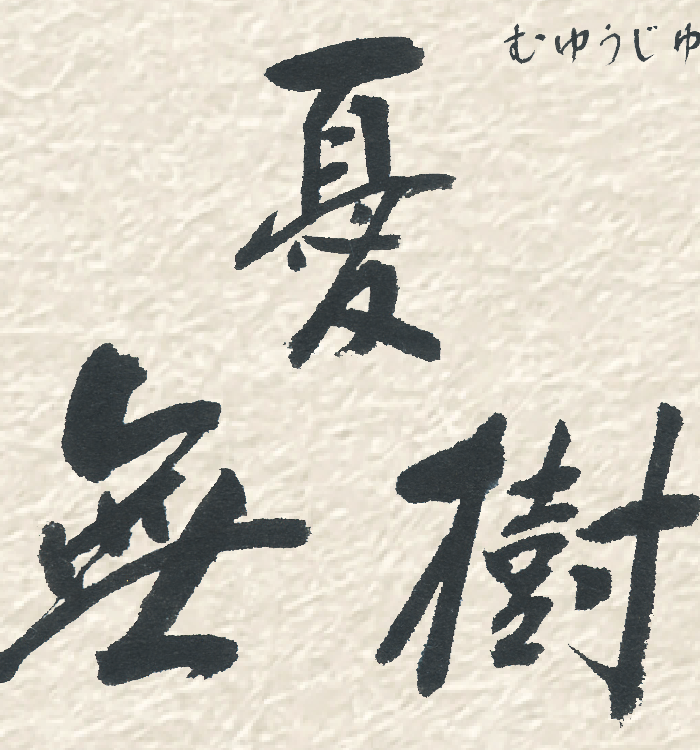 むゆうじゅ
無憂樹